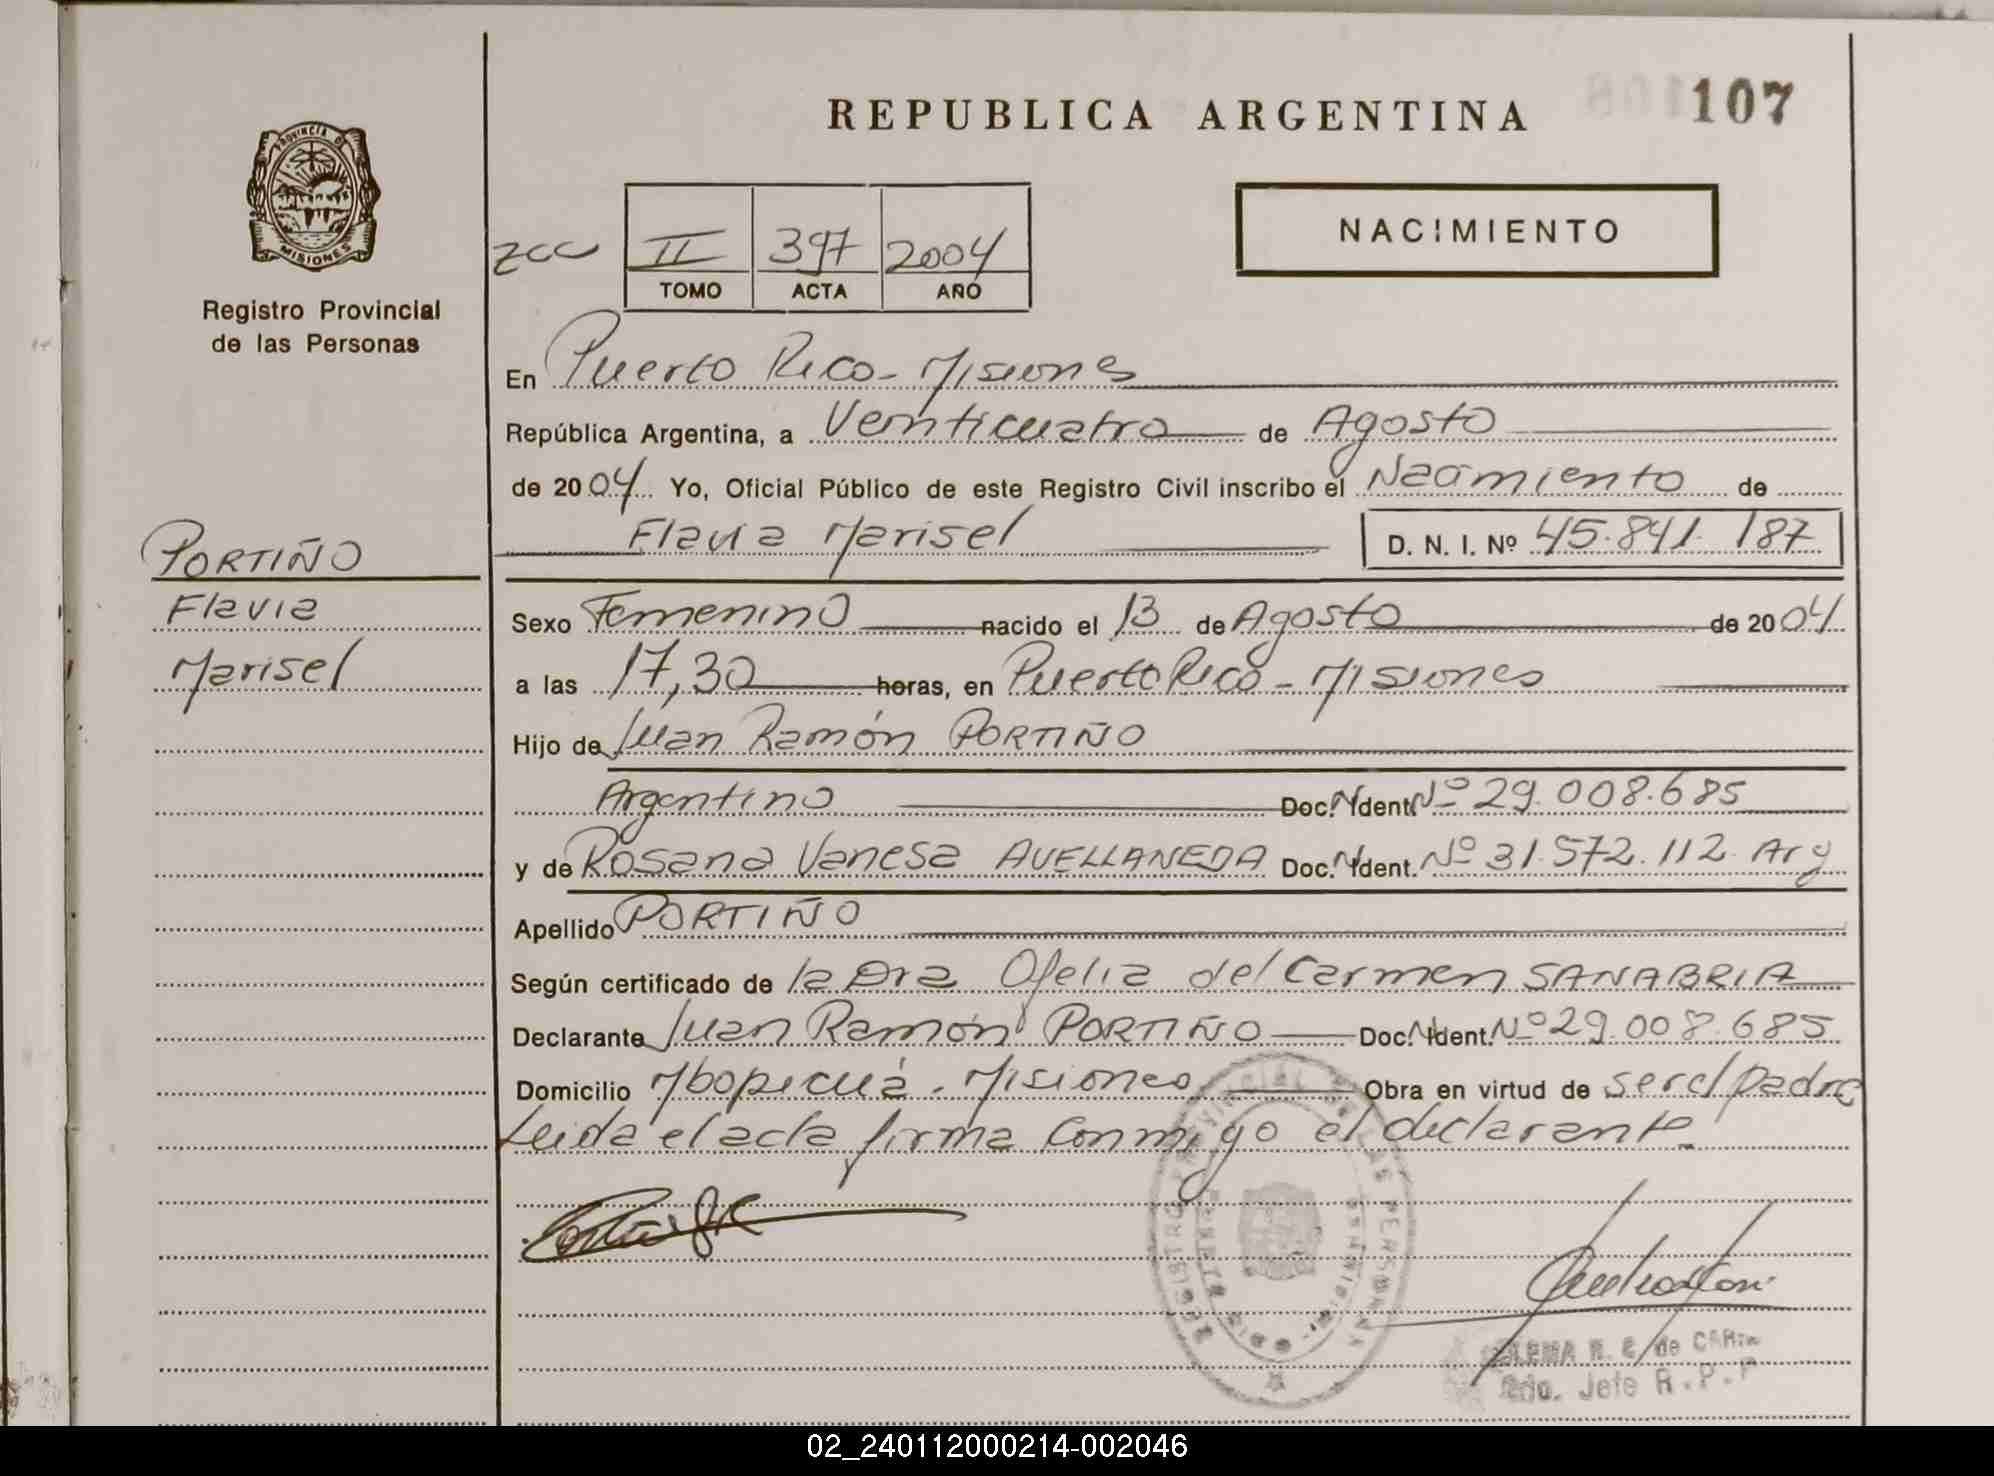 REPUBLICA ARGENTINA
107
PROVINCIA DE
MISIONES
Registro Provincial
de las Personas
NACIMIENTO
II 397 2004
TOMO ACTA AÑO
En Puerto Rico - Misiones
República Argentina, a Veinticuatro de Agosto
de 2004 Yo, Oficial Público de este Registro Civil inscribo el Nacimiento de
Flavia Marisel D. N. I. Nº 45.841.187
PORTIÑO
Flavia
Marisel
Sexo Femenino nacido el 13 de Agosto de 2004
a las 17,30 horas, en Puerto Rico - Misiones
Hijo de Juan Ramón PORTIÑO
Argentino Doc. N Ident. Nº 29.008.685
y de Rosana Vanesa AVELLANEDA Doc. N Ident. Nº 31.572.112 Arg
Apellido PORTIÑO
Según certificado de la Dra Ofelia del Carmen SANABRIA
Declarante Juan Ramón PORTIÑO Doc. N Ident. Nº 29.008.685
Domicilio Mbopicuá - Misiones Obra en virtud de ser el padre
Leida el acta firma conmigo el declarante
REGISTRO PROVINCIAL DE LAS PERSONAS
PUERTO RICO MISIONES
R. E. de
2do. Jefe R.P.P
02_240112000214-002046